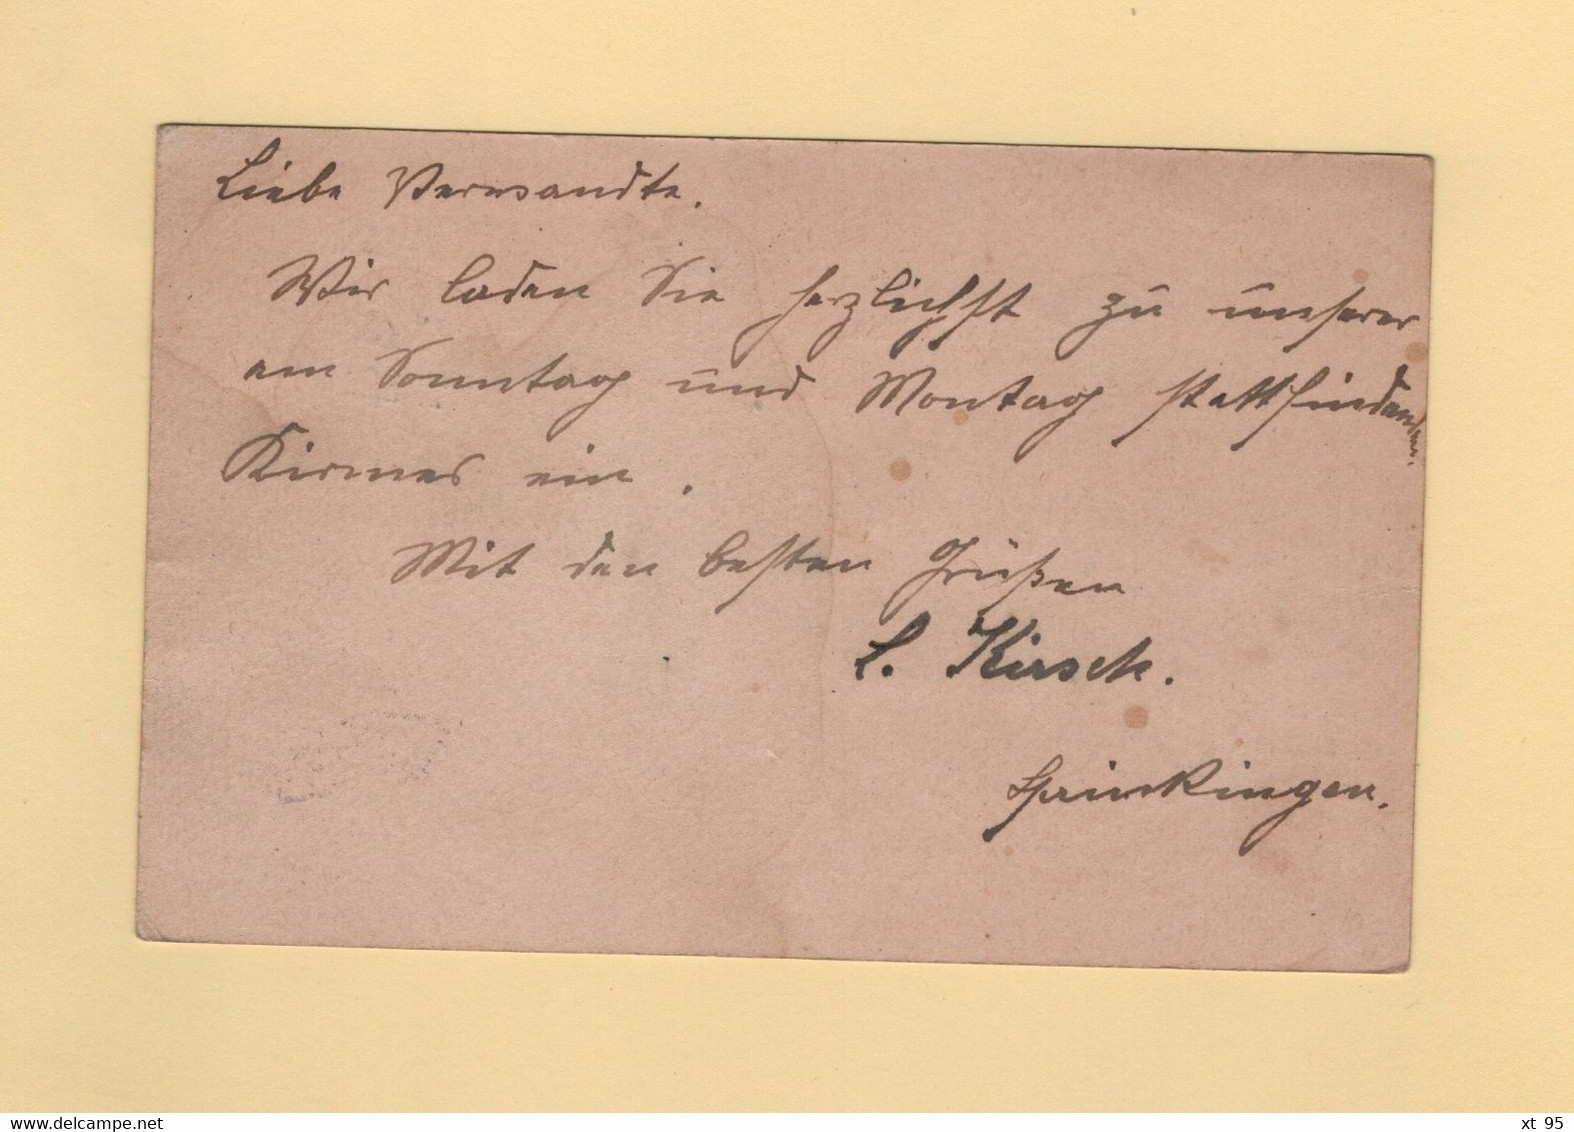 Liebe Verwandte.
Wir laden Sie herzlichst zu unserer
am Sonntag und Montag stattfindenden
Kirmes ein.
Mit den besten Grüßen
L. Kirsch.
www.delcampe.net
xt 95